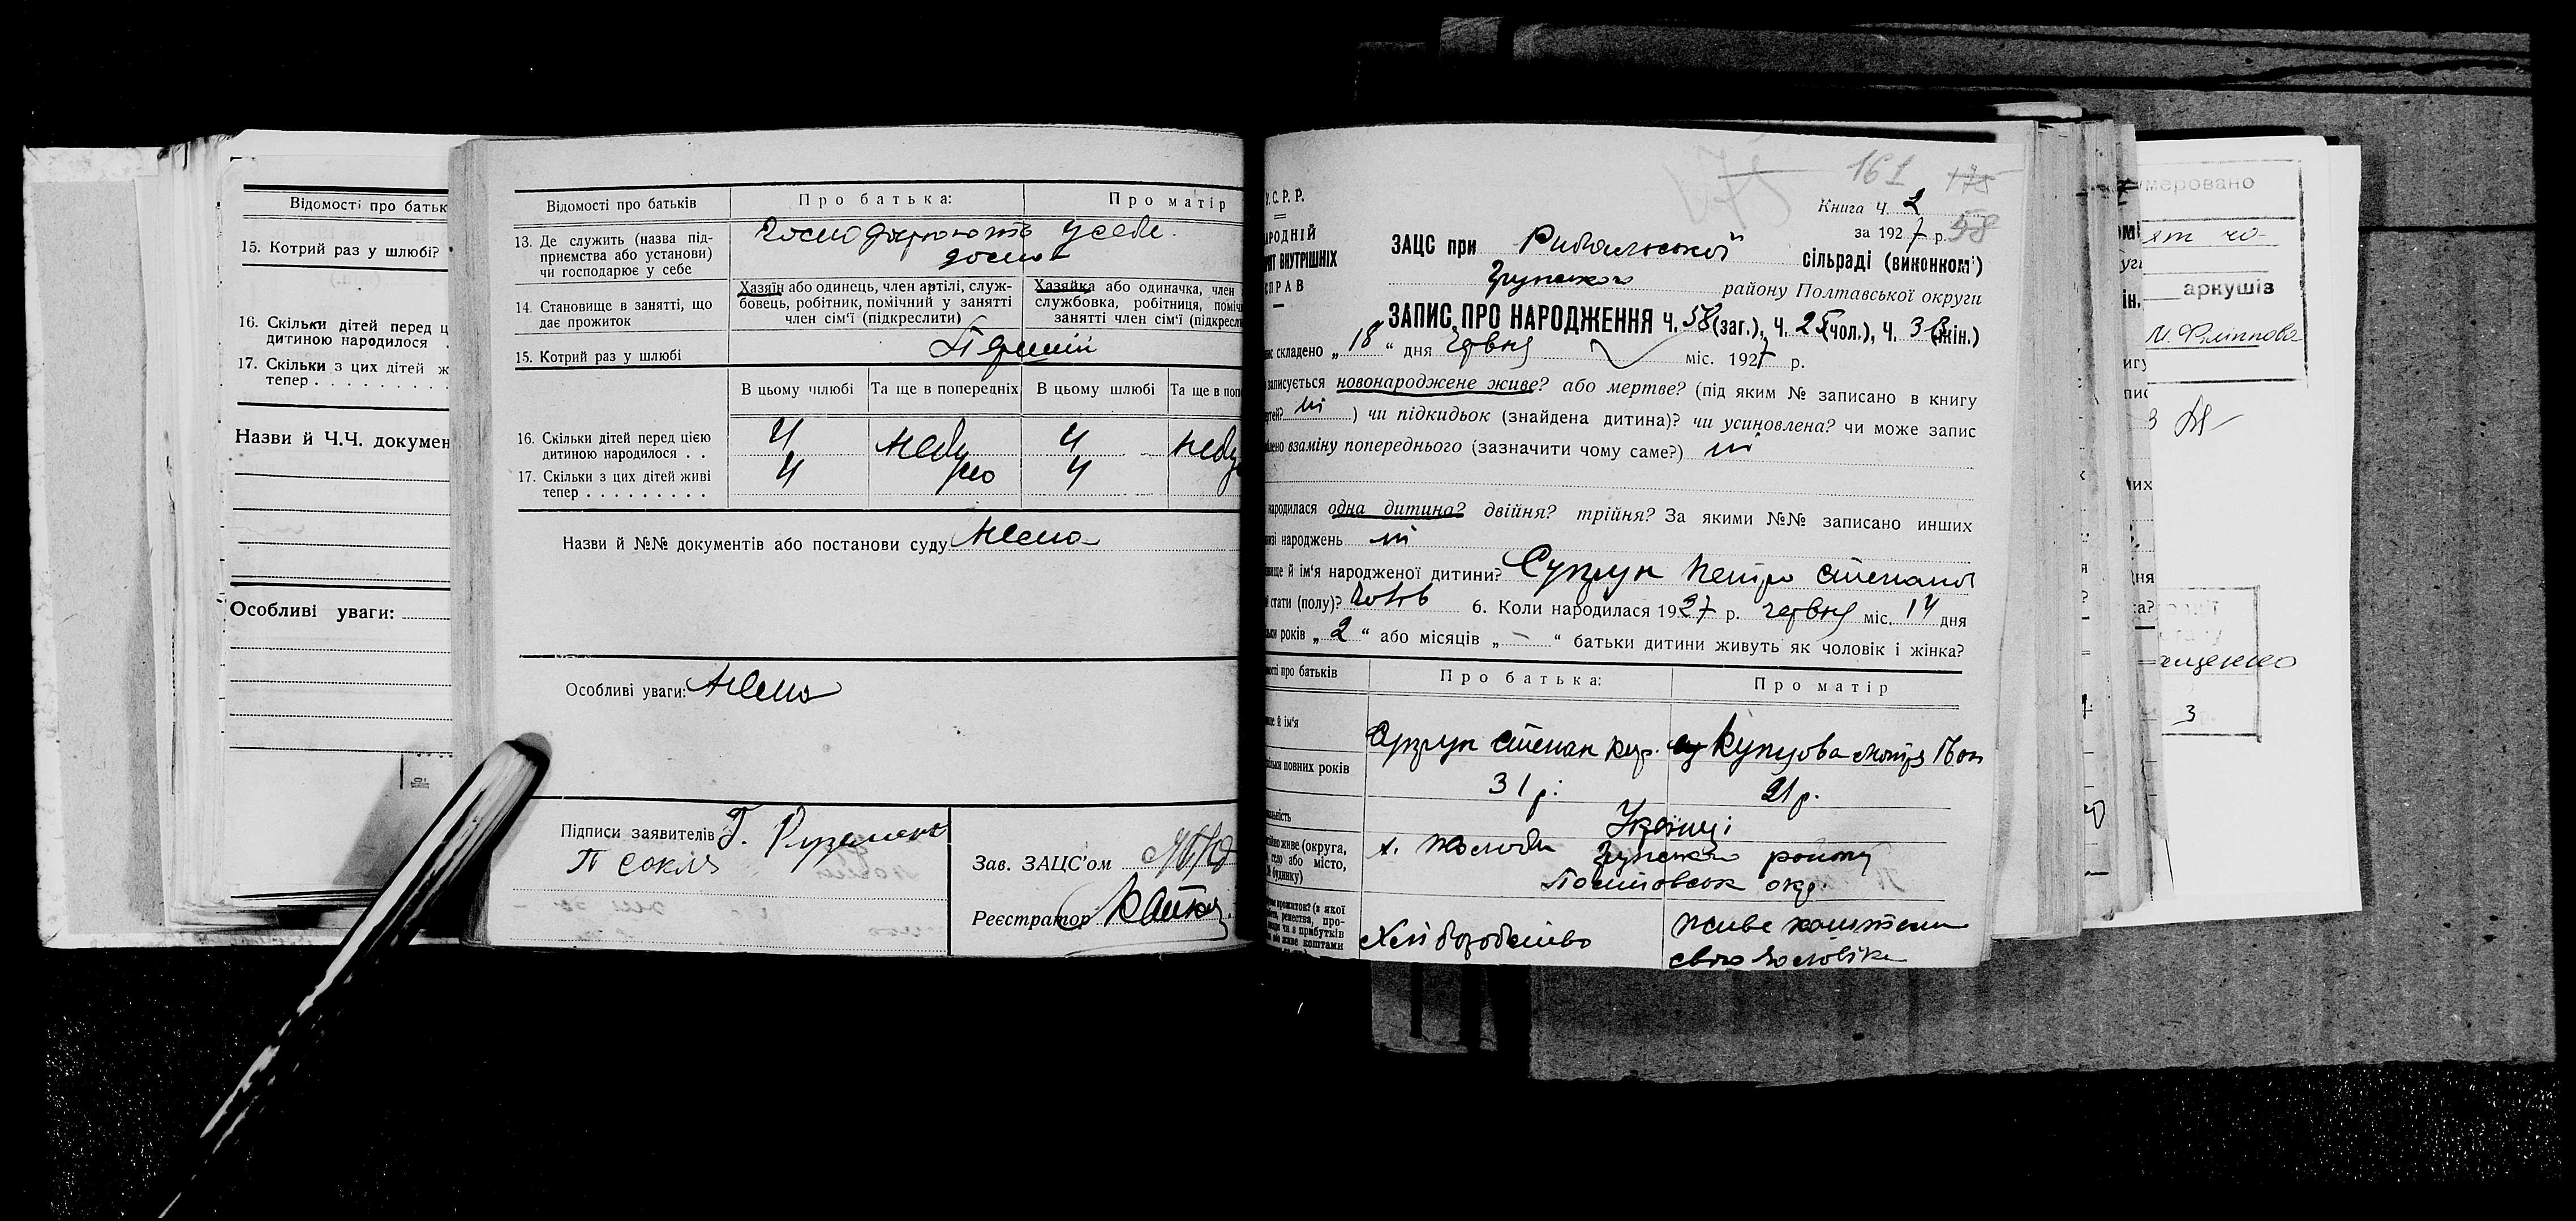 Відомості про батьк
15. Котрий раз у шлюбі?
16. Скільки дітей перед ц
дитиною народилося
17. Скільки з цих дітей ж
тепер . . . . . . . . .
Назви й Ч.Ч. докумен
Особливі уваги:
Відомості про батьків
Про батька:
Про матір
13. Де служить (назва під-
приємства або установи)
чи господарює у себе
господарюють у себе
14. Становище в занятті, що
дає прожиток
Хазяїн або одинець, член артілі, служ-
бовець, робітник, помічний у занятті
член сім'ї (підкреслити)
Хазяйка або одиначка, член
службовка, робітниця, поміч
занятті член сім'ї (підкресли
15. Котрий раз у шлюбі
Перший
В цьому шлюбі
Та ще в попередніх
В цьому шлюбі
Та ще в поп
16. Скільки дітей перед цією
дитиною народилося . .
4
4
17. Скільки з цих дітей живі
тепер . . . . . . . . .
4
4
небуло
Назви й №№ документів або постанови суду Нема
Особливі уваги: Нема
Підписи заявителів Г.
П Сокля
Зав. ЗАЦС'ом
Реєстратор
161 175
С.Р.Р.
АРОДНІЙ
ВНУТРІШНІХ
СПРАВ
Книга ч. 2
за 1927 р. 58
ЗАЦС при Рибальської сільраді (виконком')
Грунського району Полтавської округи
ЗАПИС ПРО НАРОДЖЕННЯ Ч. 58 (заг.), Ч. 25 (чол.), Ч. 33 (жін.)
ис складено „ 18 “ дня червня міс. 1927 р.
записується новонароджене живе? або мертве? (під яким № записано в книгу
ртей? ні ) чи підкидьок (знайдена дитина)? чи усиновлена? чи може запис
взаміну попереднього (зазначити чому саме?) ні
народилася одна дитина? двійня? трійня? За якими №№ записано инших
народжень ні
й ім'я народженої дитини? Супрун Петро Степанов
стати (полу)? чолов 6. Коли народилася 1927 р. червня міс. 14 дня
років „ 2 “ або місяців „ – “ батьки дитини живуть як чоловік і жінка?
мості про батьків
Про батька:
Про матір
ще й ім'я
Супрун Степан
Купцова
повних років
31 р.
21 р.
Українці
живе (округа,
село або місто,
будинку)
Грунського району
Полтавськ окр.
Хліборобство
живе коштами
свого чоловіка
умеровано
аркушів
3